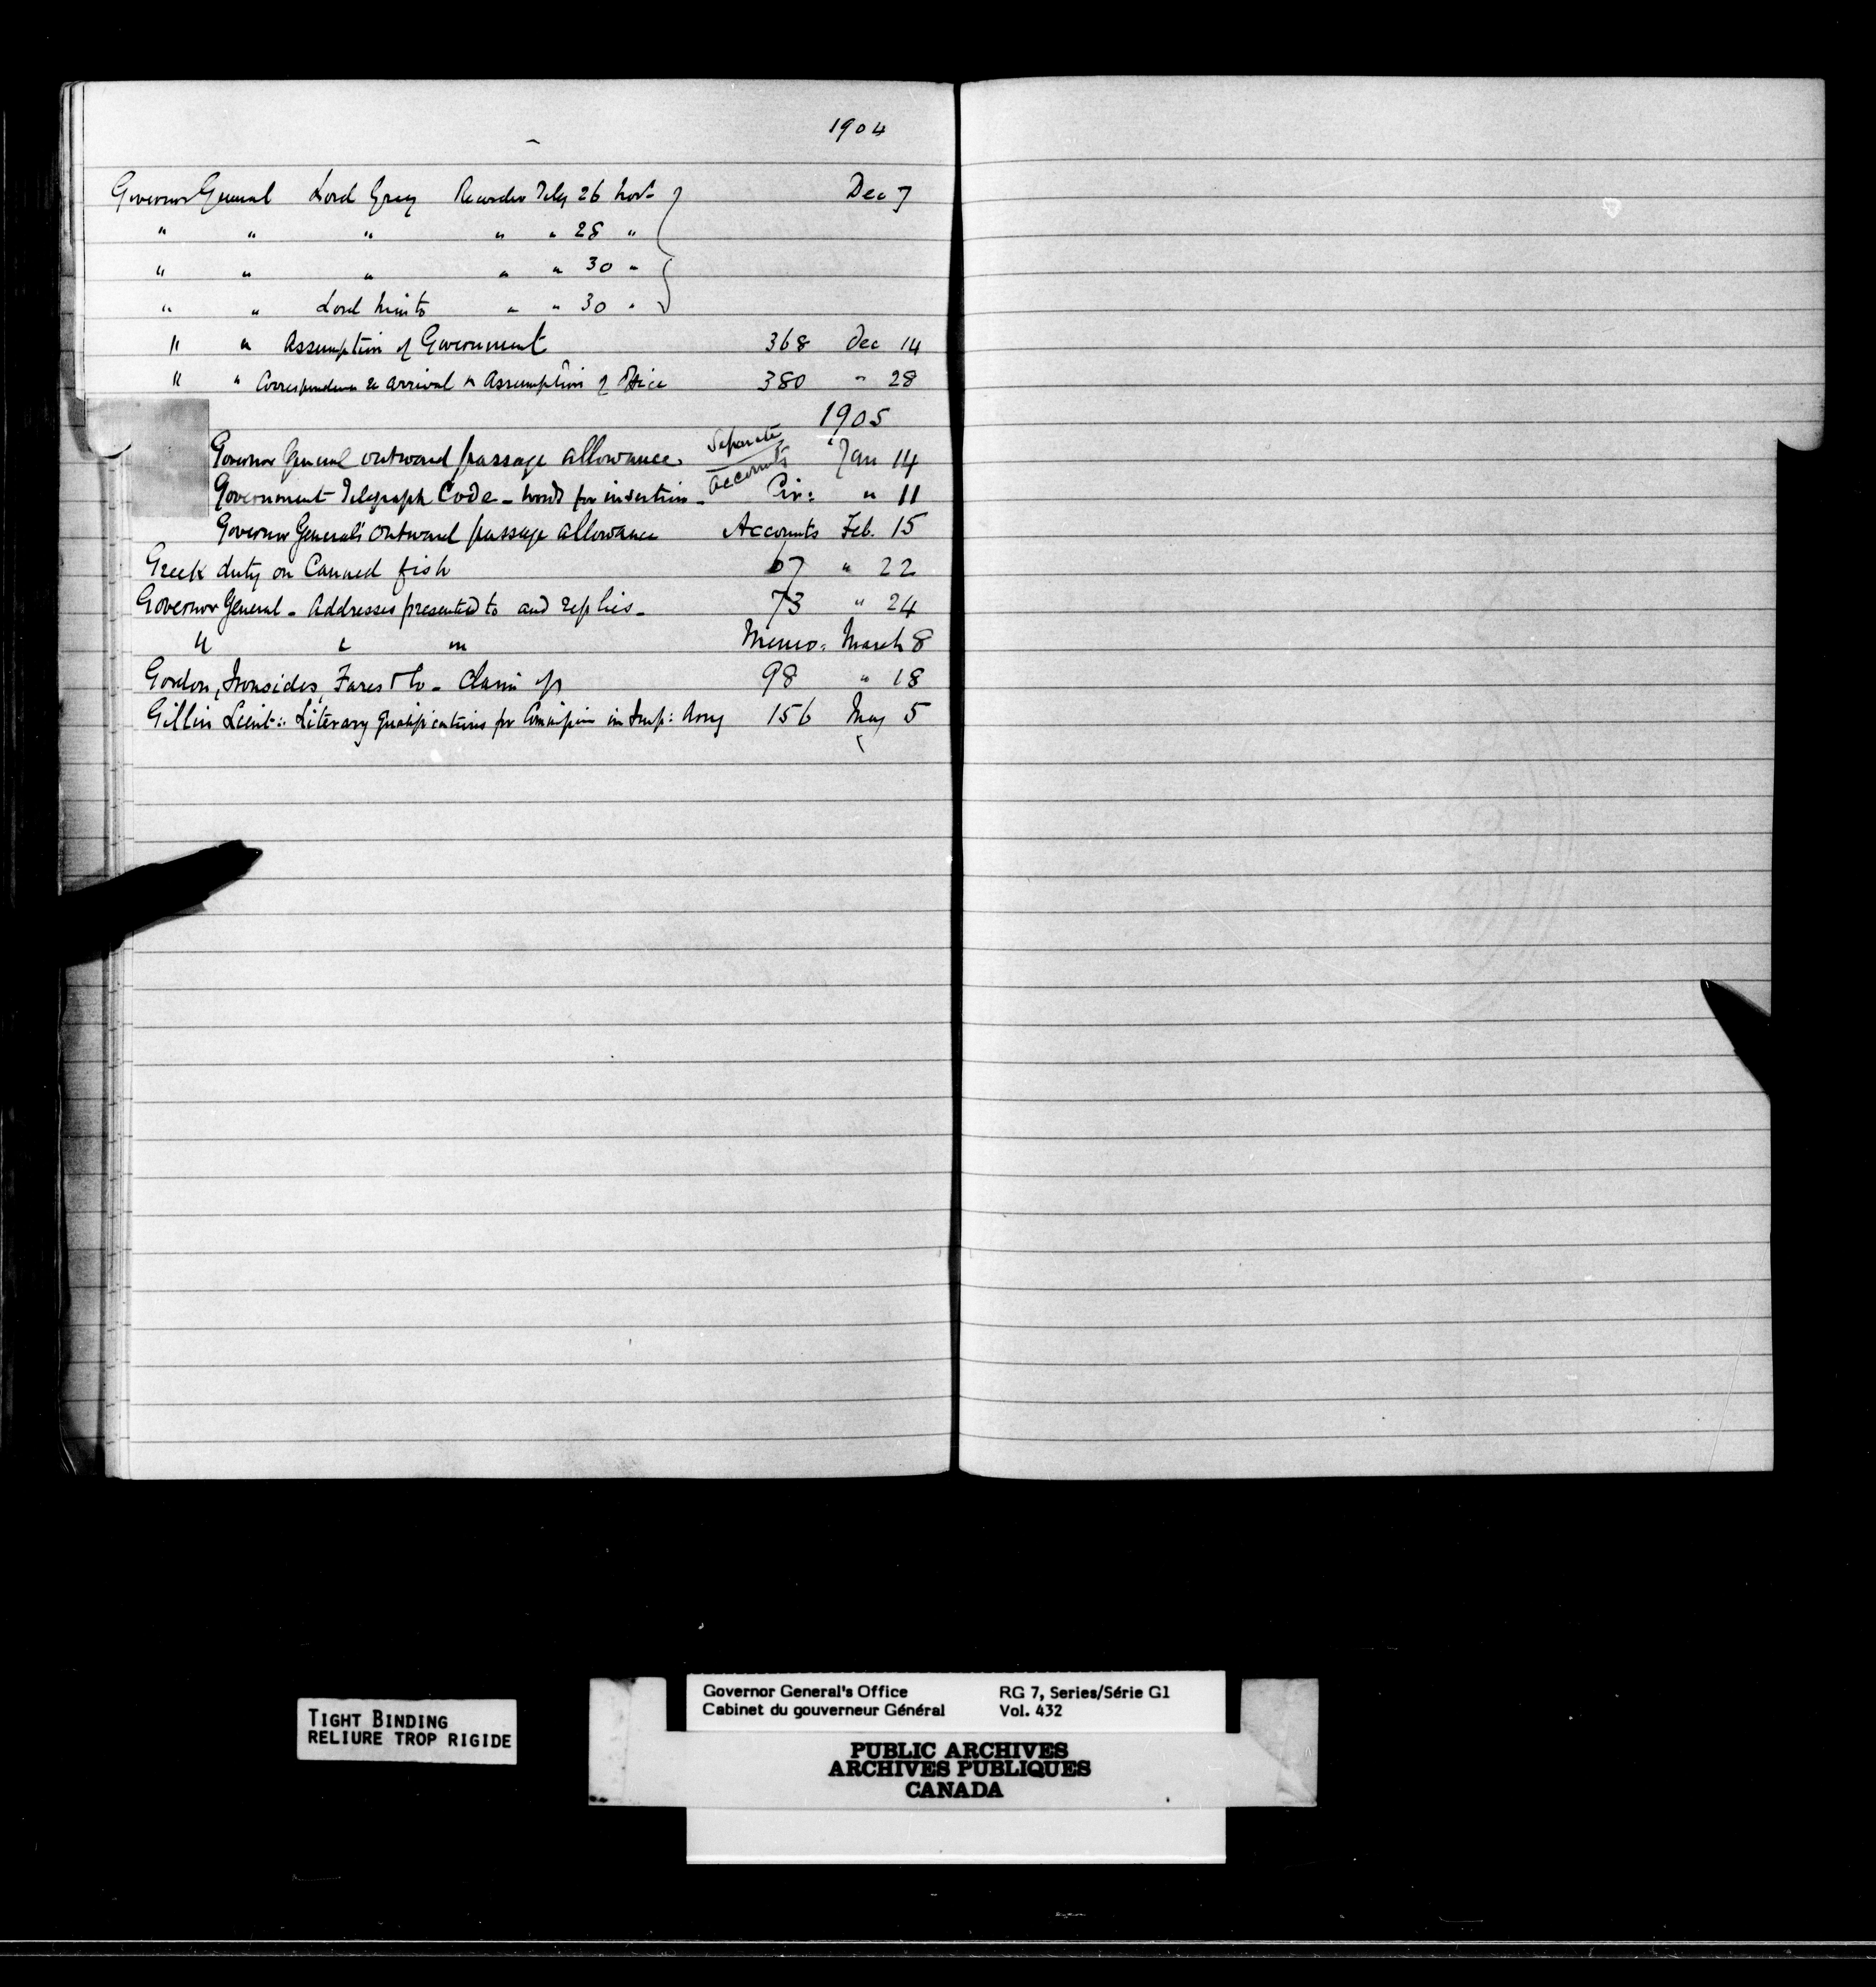 1904
Governor General Lord Grey Recorder Teleg 26 Novr Dec 7
" " " " " 28 "
" " " " " 30 "
" " Lord Minto " " 30 "
" " Assumption of Government 368 Dec 14
" " Correspondence re arrival & Assumption of Office 380 " 28
1905
Governor General outward passage allowance. Separate Accounts Jan 14
Government Telegraph Code - words for insertion - Cir: " 11
Governor General's outward passage allowance Accounts Feb. 15
Greek duty on Canned fish 67 " 22
Governor General - Addresses presented to and replies - 73 " 24
" " " Memo: March 8
Gordon, Ironsides, Fares & Co - Claim of 98 " 18
Gillin Lieut:: Literary Qualifications for Commission in Imp: Army 156 May 5
TIGHT BINDING
RELIURE TROP RIGIDE
Governor General's Office RG 7, Series/Série G1
Cabinet du gouverneur Général Vol. 432
PUBLIC ARCHIVES
ARCHIVES PUBLIQUES
CANADA